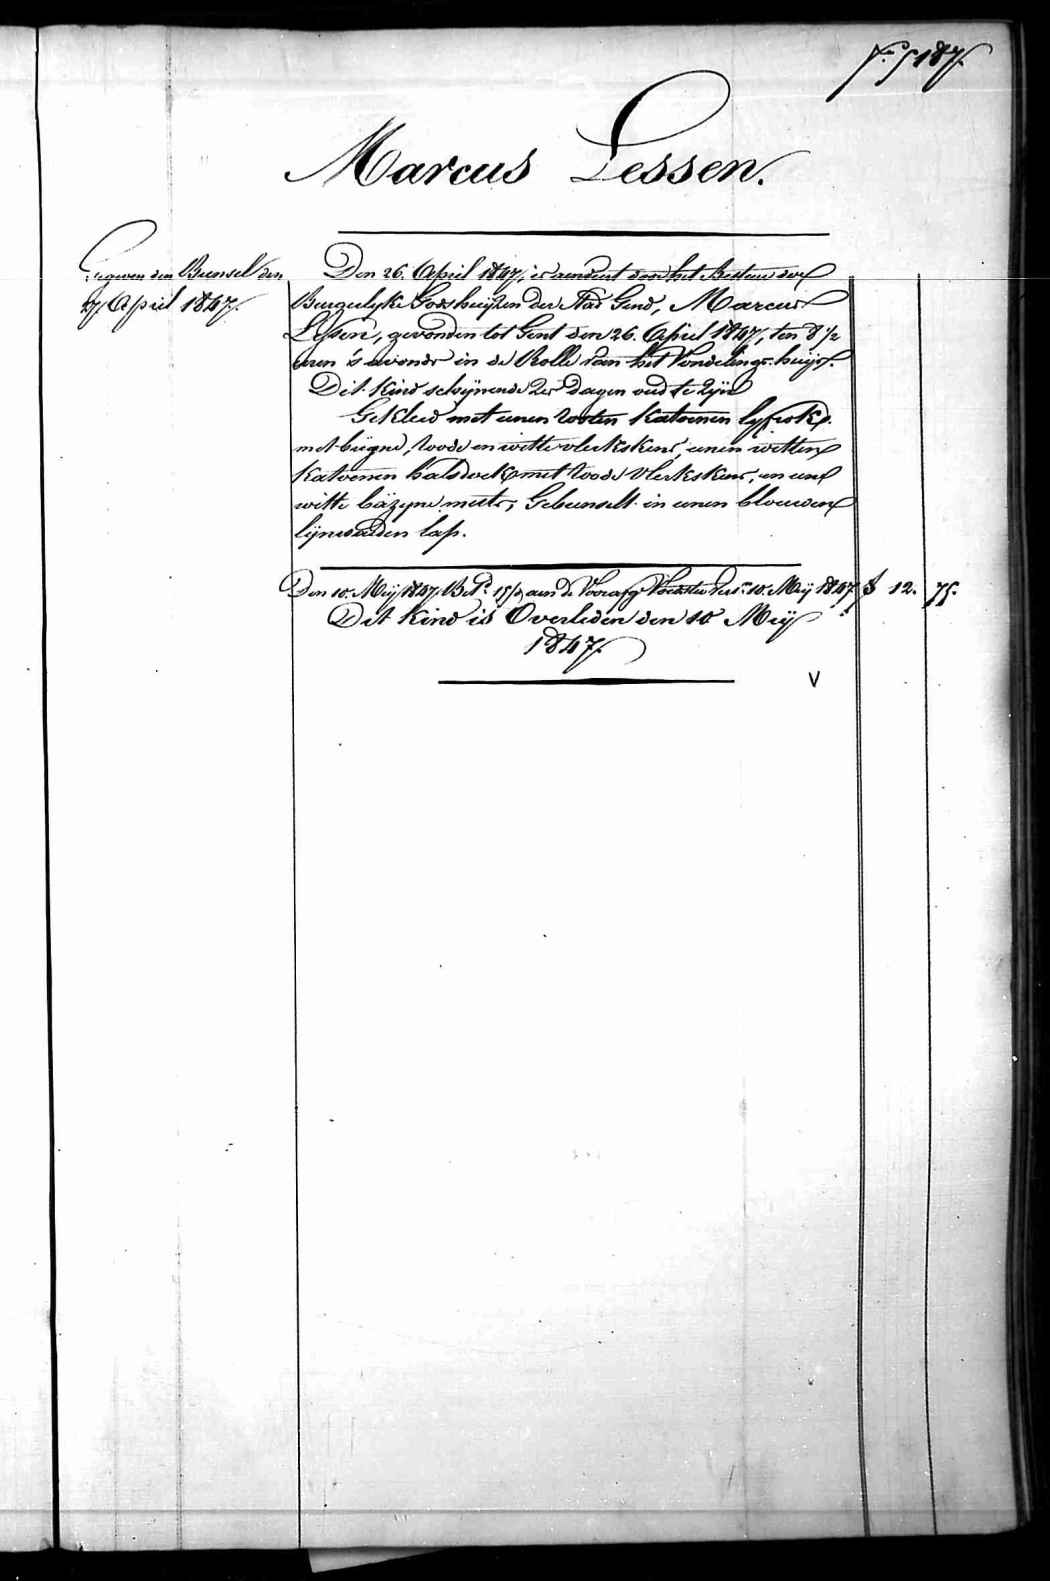 F.º 5187.
Marcus Lessen.
Gegeven den Bunsel den
27 April 1847.
Den 26. April 1847, is aenveert door het Bestuer der
Burgerlyke Godshuijzen der Stad Gend, Marcus
Lessen, gevonden tot Gent den 26. April 1847, ten 8 1/2
uren 's avonds in de Rolle van het Vondelings-huijs.
Dit Kind schijnende 2er dagen oud te Zijn
Gekleed met eenen rooten Katoenen lyfrok
met beijne, roode en witte vlekskens, eenen witten
Katoenen halsdoek met roode vlekskens, en een
witte bäzyne muts, Gebunselt in eenen blouwen
lijnwaeden lap.
Den 10. Meij 1847 Bet.d 15/ aen de Voorafge Voester Vers. 10. Meij 1847 f 12. 75.
Dit Kind is Overleden den 10 Meij
1847.
V